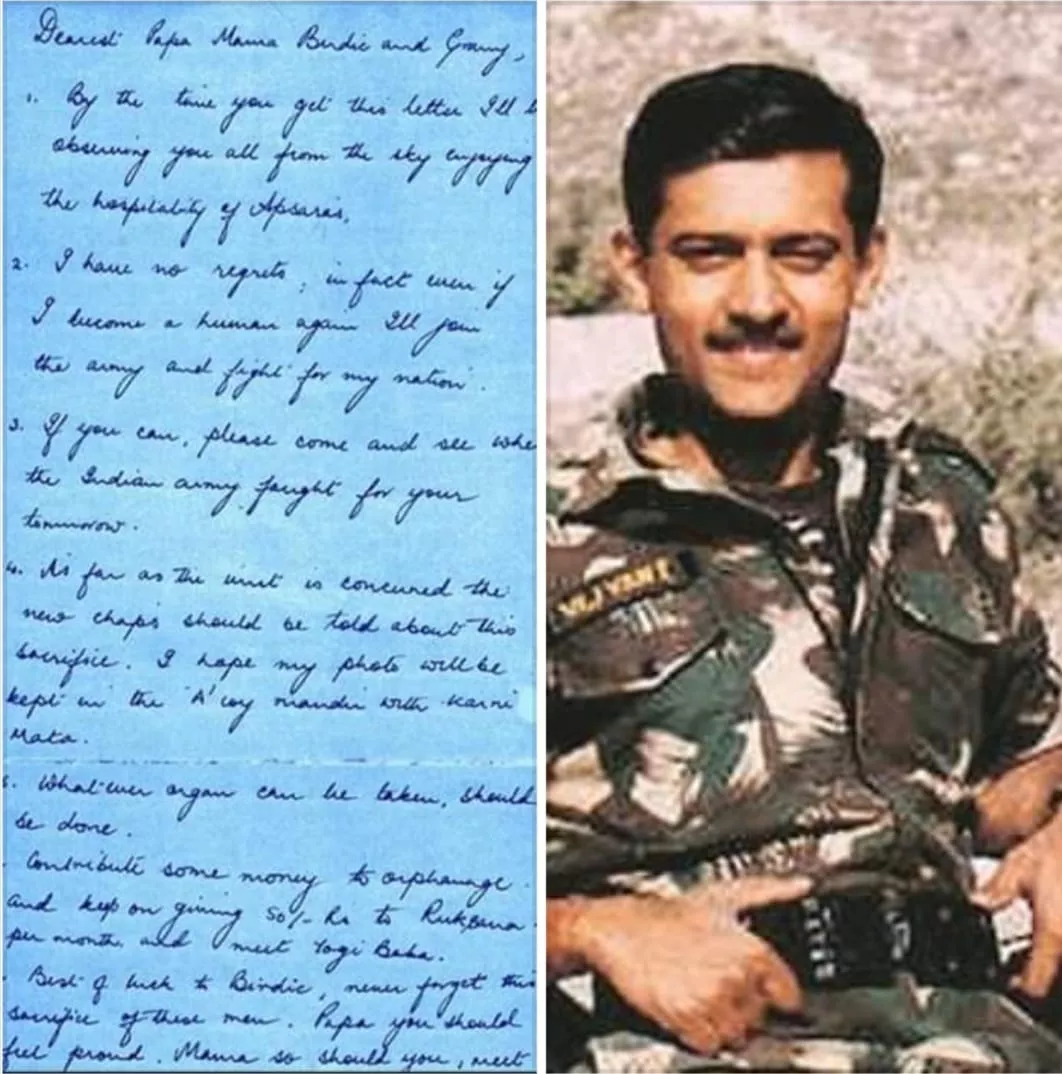 Dearest Papa Mama Birdie and Granny,
1. By the time you get this letter I'll b
observing you all from the sky enjoying
the hospitality of Apsaras.
2. I have no regrets, in fact even if
I become a human again I'll join
the army and fight for my nation.
3. If you can, please come and see whe
the Indian army fought for your
tomorrow.
4. As far as the unit is concerned the
new chaps should be told about this
sacrifice. I hope my photo will be
kept in the 'A' coy mandir with Karni
Mata.
. Whatever organ can be taken, should
be done.
. Contribute some money to orphanage.
and keep on giving 50/- Rs to Ruksana
per month and meet Yogi Baba.
. Best of luck to Birdie, never forget this
sacrifice of these men. Papa you should
feel proud. Mama so should you, meet
VIJYANT